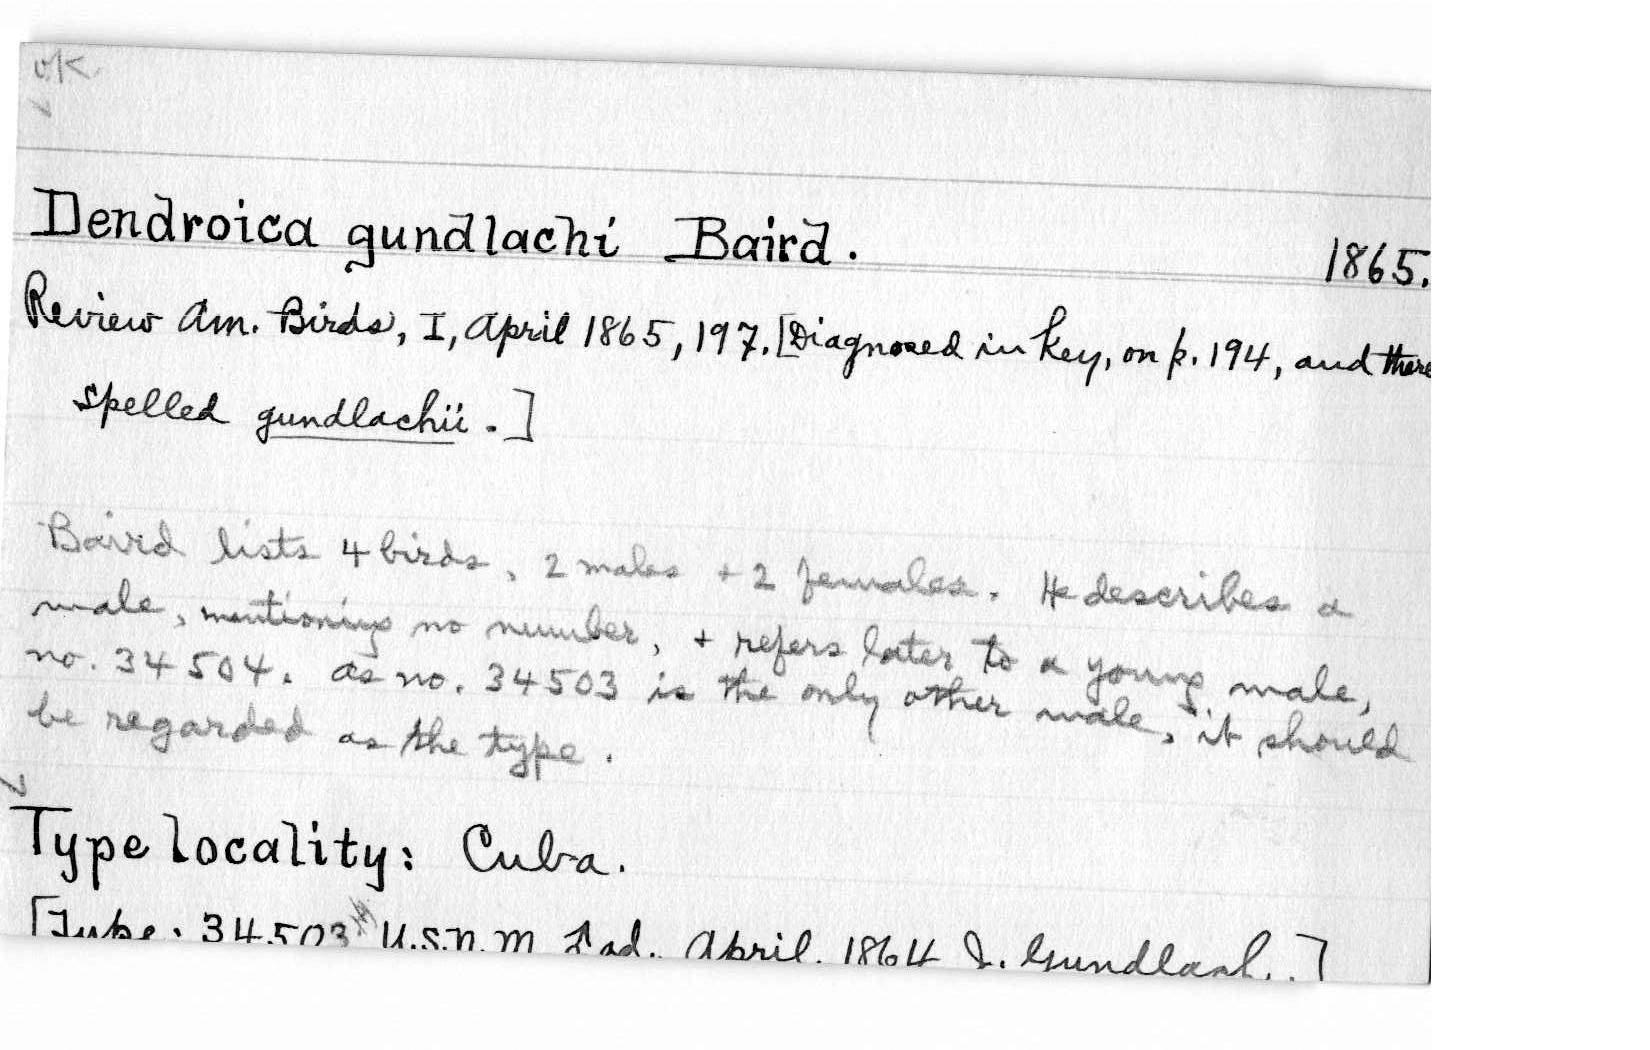 OK
Dendroica gundlachi Baird. 1865.
Review Am. Birds, I, April 1865, 197. [Diagnosed in key, on p. 194, and there
spelled gundlachii.]
Baird lists 4 birds, 2 males + 2 females. He describes a
male, mentioning no number, + refers later to a young male,
no. 34504. As no. 34503 is the only other male, it should
be regarded as the type.
Type locality: Cuba.
[Type: 34503 U.S.N.M. ad. April, 1864 J. Gundlach.]